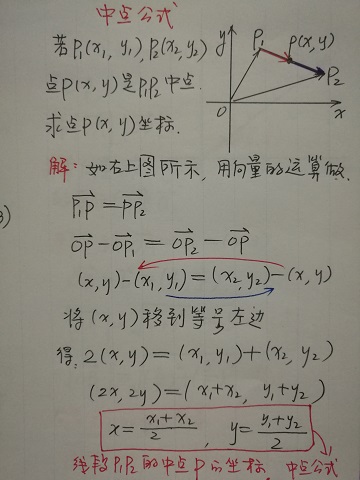 中点公式
若P₁(x₁, y₁), P₂(x₂, y₂)
点P(x, y)是P₁P₂中点.
求点P(x, y)坐标.
y
P₁
P(x, y)
P₂
O
x
解: 如右上图所示, 用向量的运算做.
3)
P₁P⃗ = PP₂⃗
OP⃗ - OP₁⃗ = OP₂⃗ - OP⃗
(x, y) - (x₁, y₁) = (x₂, y₂) - (x, y)
将(x, y)移到等号左边
得: 2(x, y) = (x₁, y₁) + (x₂, y₂)
(2x, 2y) = (x₁+x₂, y₁+y₂)
x = (x₁+x₂)/2, y = (y₁+y₂)/2
线段P₁P₂的中点P的坐标, 中点公式